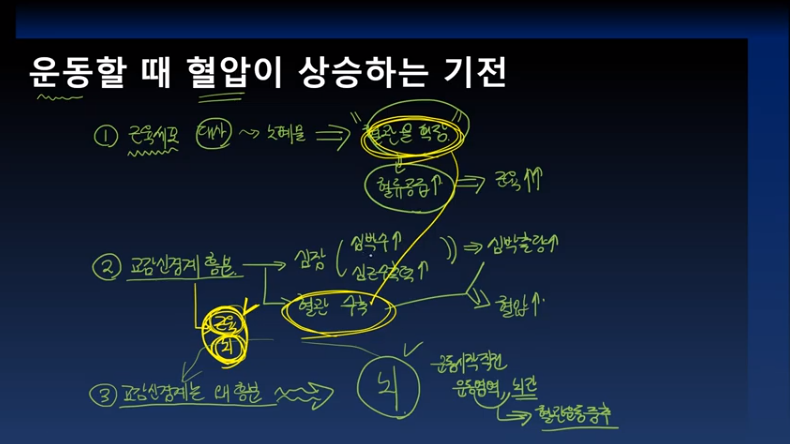 운동할 때 혈압이 상승하는 기전
① 근육세포 대사 ~> 노폐물 => "혈관을 확장"
혈류공급↑ => 근육↑↑
② 교감신경계 흥분 → 심장 ( 심박수↑ => 심박출량↑
심근수축력↑
혈관 수축 혈압↑
근육
뇌
③ 교감신경계는 왜 흥분 뇌 운동시작 직전
운동영역, 뇌간
혈관운동중추